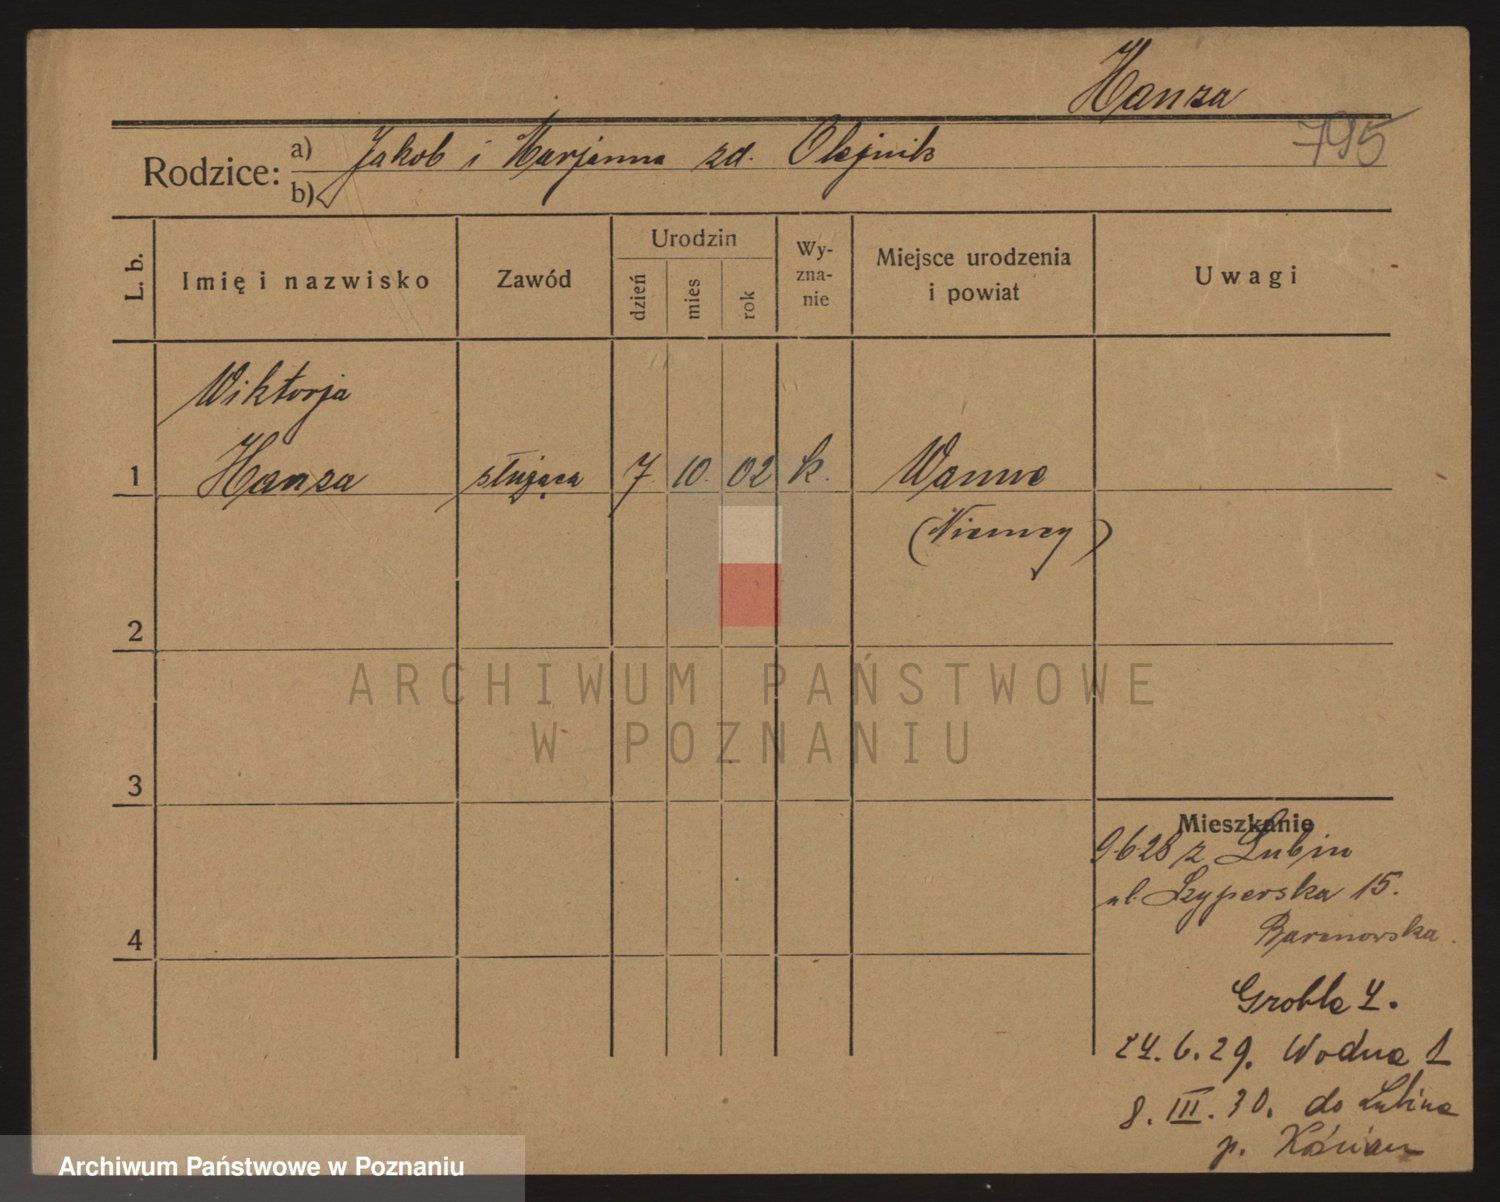 Hanza
795
Rodzice: a) Jakob i Marjanna zd. Olejnik
b)
L. b. Imię i nazwisko Zawód Urodzin dzień mies rok Wy-zna-nie Miejsce urodzenia i powiat Uwagi
Wiktorja
1 Hanza służąca 7. 10. 02 k. Wanne
(Niemcy)
2
3
4
Mieszkanie
9.6.28 z Lubin
ul. Szyperska 15.
Baranowska.
Grobla 4.
24.6.29. Wodna 1
8. III. 30. do Lubina
p. Kościan
ARCHIWUM PAŃSTWOWE
W POZNANIU
Archiwum Państwowe w Poznaniu